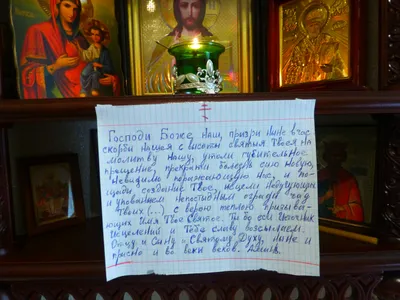 Господи Боже наш, призри ныне в час
скорби нашея с высоты святыя Твоея на
молитву нашу, утоли губительное
прещение, прекрати болезнь сию новую,
невидимо поражающую нас, и по-
щади создание Твое, исцели недугующия
и упованием непостыдным огради чад
Твоих (...) с верою теплою призыва-
ющих Имя Твое Святое. Ты бо еси Источник
исцелений и Тебе славу возсылаем.
Отцу и Сыну и Святому Духу, ныне и
присно и во веки веков. Аминь.